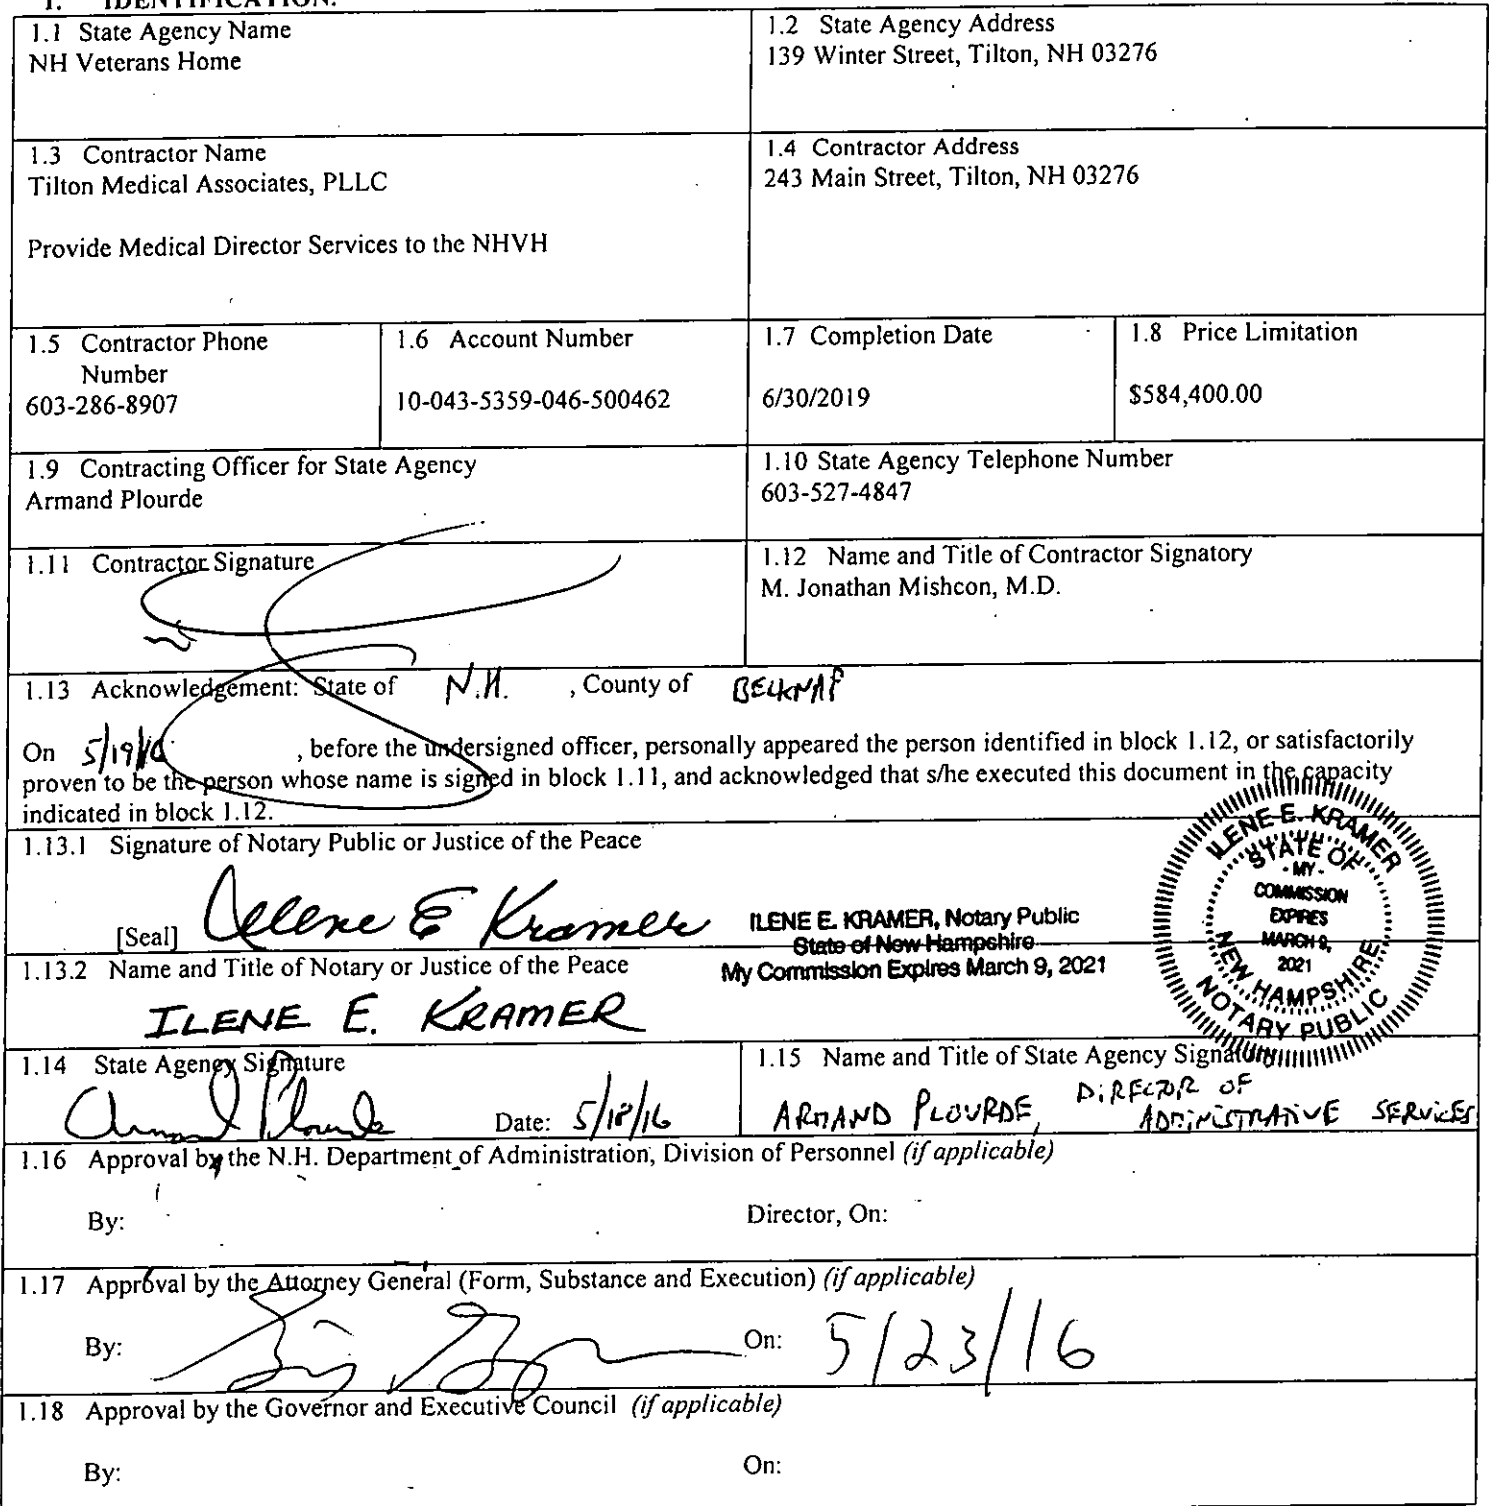 1. IDENTIFICATION.
1.1 State Agency Name
NH Veterans Home
1.2 State Agency Address
139 Winter Street, Tilton, NH 03276
1.3 Contractor Name
Tilton Medical Associates, PLLC
Provide Medical Director Services to the NHVH
1.4 Contractor Address
243 Main Street, Tilton, NH 03276
1.5 Contractor Phone
Number
603-286-8907
1.6 Account Number
10-043-5359-046-500462
1.7 Completion Date
6/30/2019
1.8 Price Limitation
$584,400.00
1.9 Contracting Officer for State Agency
Armand Plourde
1.10 State Agency Telephone Number
603-527-4847
1.11 Contractor Signature
1.12 Name and Title of Contractor Signatory
M. Jonathan Mishcon, M.D.
1.13 Acknowledgement: State of N.H. , County of BELKNAP
On 5/19/16 , before the undersigned officer, personally appeared the person identified in block 1.12, or satisfactorily
proven to be the person whose name is signed in block 1.11, and acknowledged that s/he executed this document in the capacity
indicated in block 1.12.
1.13.1 Signature of Notary Public or Justice of the Peace
[Seal] Ilene E Kramer
ILENE E. KRAMER, Notary Public
State of New Hampshire
My Commission Expires March 9, 2021
ILENE E. KRAMER
STATE OF
- MY -
COMMISSION
EXPIRES
MARCH 9,
2021
NEW HAMPSHIRE
NOTARY PUBLIC
1.13.2 Name and Title of Notary or Justice of the Peace
ILENE E. KRAMER
1.14 State Agency Signature
Armand Plourde Date: 5/18/16
1.15 Name and Title of State Agency Signatory
ARMAND PLOURDE, DIRECTOR OF
ADMINISTRATIVE SERVICES
1.16 Approval by the N.H. Department of Administration, Division of Personnel (if applicable)
By: Director, On:
1.17 Approval by the Attorney General (Form, Substance and Execution) (if applicable)
By: On: 5/23/16
1.18 Approval by the Governor and Executive Council (if applicable)
By: On: